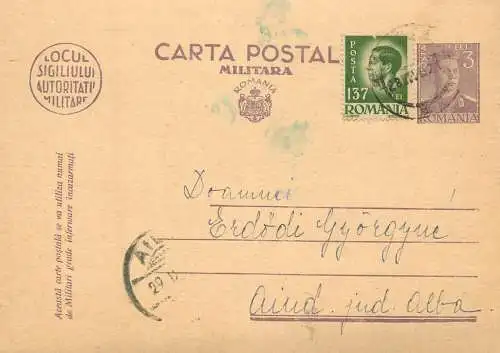 LOCUL
SIGILIULUI
AUTORITATII
MILITARE
CARTA POSTAL
MILITARA
ROMANIA
POSTA
137
LEI
ROMANIA
3
ROMANIA
Această carte poştală se va utiliza numai
de Militari grade inferioare încazarmaţi
Doamnei
Erdődi Györgyne
Aiud, jud. Alba